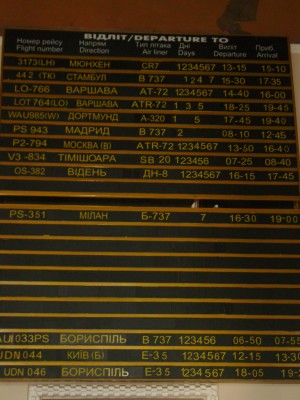 ВІДЛІТ/DEPARTURE TO
Номер рейсу Напрям Тип літака Дні Виліт Приб.
Flight number Direction Air liner Days Departure Arrival
3173(LH) МЮНХЕН CR7 1234567 13-15 15-10
442 (TK) СТАМБУЛ B 737 1 2 4 7 15-30 17-35
LO-766 ВАРШАВА AT-72 1234567 14-40 16-00
LOT764(LO) ВАРШАВА ATR-72 1 3 5 18-25 19-45
WAU985(W) ДОРТМУНД A-320 1 5 17-45 19-40
PS 943 МАДРИД B 737 2 08-10 12-45
P2-794 МОСКВА (В) ATR-72 1234567 13-50 16-40
V3 -834 ТІМІШОАРА SB 20 123456 07-25 08-40
OS-382 ВІДЕНЬ ДН-8 1234567 16-15 17-45
PS-351 МІЛАН Б-737 7 16-30 19-00
AUI033PS БОРИСПІЛЬ B 737 123456 06-50 07-55
UDN 044 КИЇВ (Б) E-35 1234567 12-15 13-30
UDN 046 БОРИСПІЛЬ E-35 1234567 18-05